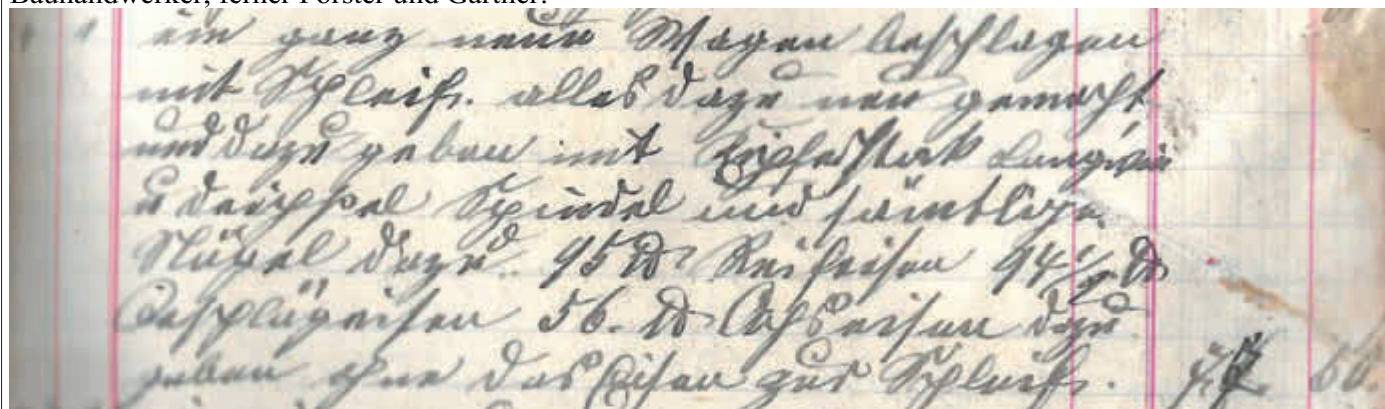 Bauhandwerker, ferner Förster und Gärtner.
ein ganz neun Wagen beschlagen
mit Schleif. alles dazu neu gemacht
und dazu geben mit Langwie
u deichsel Spindel und sämtlige
Nägel dazu. 95 ℔ Reifeisen 94 1/2 ℔
Beschlägeisen 56. ℔ Achseisen dazu
geben ohne das Eisen zur Schleif.